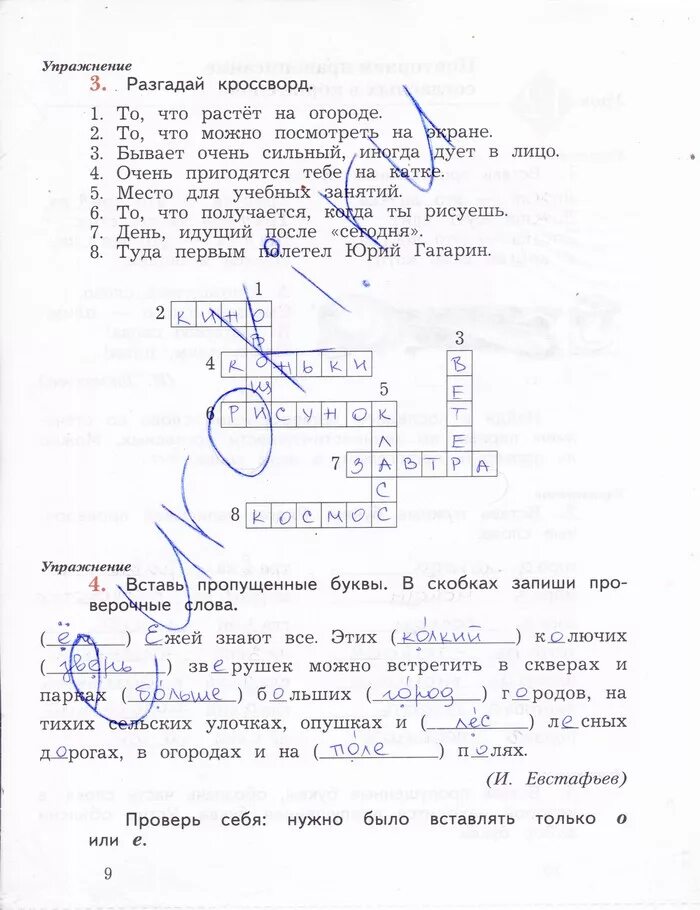 Упражнение
3. Разгадай кроссворд.
1. То, что растёт на огороде.
2. То, что можно посмотреть на экране.
3. Бывает очень сильный, иногда дует в лицо.
4. Очень пригодятся тебе на катке.
5. Место для учебных занятий.
6. То, что получается, когда ты рисуешь.
7. День, идущий после «сегодня».
8. Туда первым полетел Юрий Гагарин.
1
2 КИНО
3
4 КОНЬКИ
ВЕТЕР
5
6 РИСУНОК
КЛАСС
7 ЗАВТРА
8 КОСМОС
Упражнение
4. Вставь пропущенные буквы. В скобках запиши про-
верочные слова.
( ) Ежей знают все. Этих (колкий) колючих
(зверь) зверушек можно встретить в скверах и
парках (больше) больших (город) городов, на
тихих сельских улочках, опушках и (лес) лесных
дорогах, в огородах и на (поле) полях.
(И. Евстафьев)
Проверь себя: нужно было вставлять только о
или е.
9